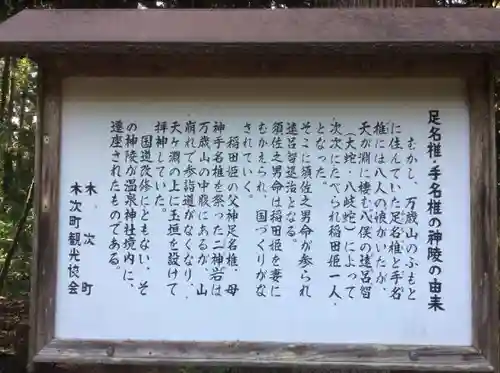 足名椎・手名椎の神陵の由来
むかし、万歳山のふもと
に住んでいた足名椎と手名
椎には八人の娘がいたが、
天が淵に棲む八俣の遠呂智
(大蛇・八岐蛇)によって
次次にたべられ稲田姫一人
となった。
そこに須佐之男命が参られ
遠呂智退治となる。
須佐之男命は稲田姫を妻に
むかえられ、国づくりがな
されていく。
稲田姫の父神足名椎、母
神手名椎を祭った二神岩は
万歳山の中腹にあるが、山
崩れで参詣道がなくなり、
天ヶ淵の上に玉垣を設けて
拝神していた。
国道改修にともない、そ
の神陵が温泉神社境内に、
遷座されたものである。
木次町
木次町観光協会